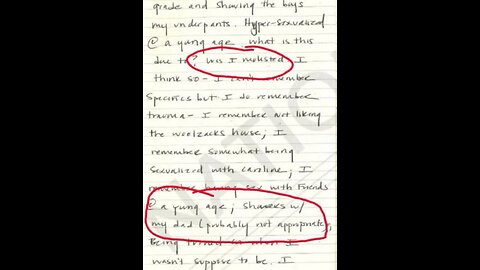 grade and showing the boys
my underpants. Hyper-sexualized
@ a young age. what is this
due to? Was I molested. I
think so - I can't remember
specifics but I do remember
trauma - I remember not liking
the woolzacks house; I
remember somewhat being
sexualized with caroline; I
remember having sex with friends
@ a young age; showers w/
my dad (probably not appropriate)
Being turned on when I
wasn't suppose to be. I
NATION